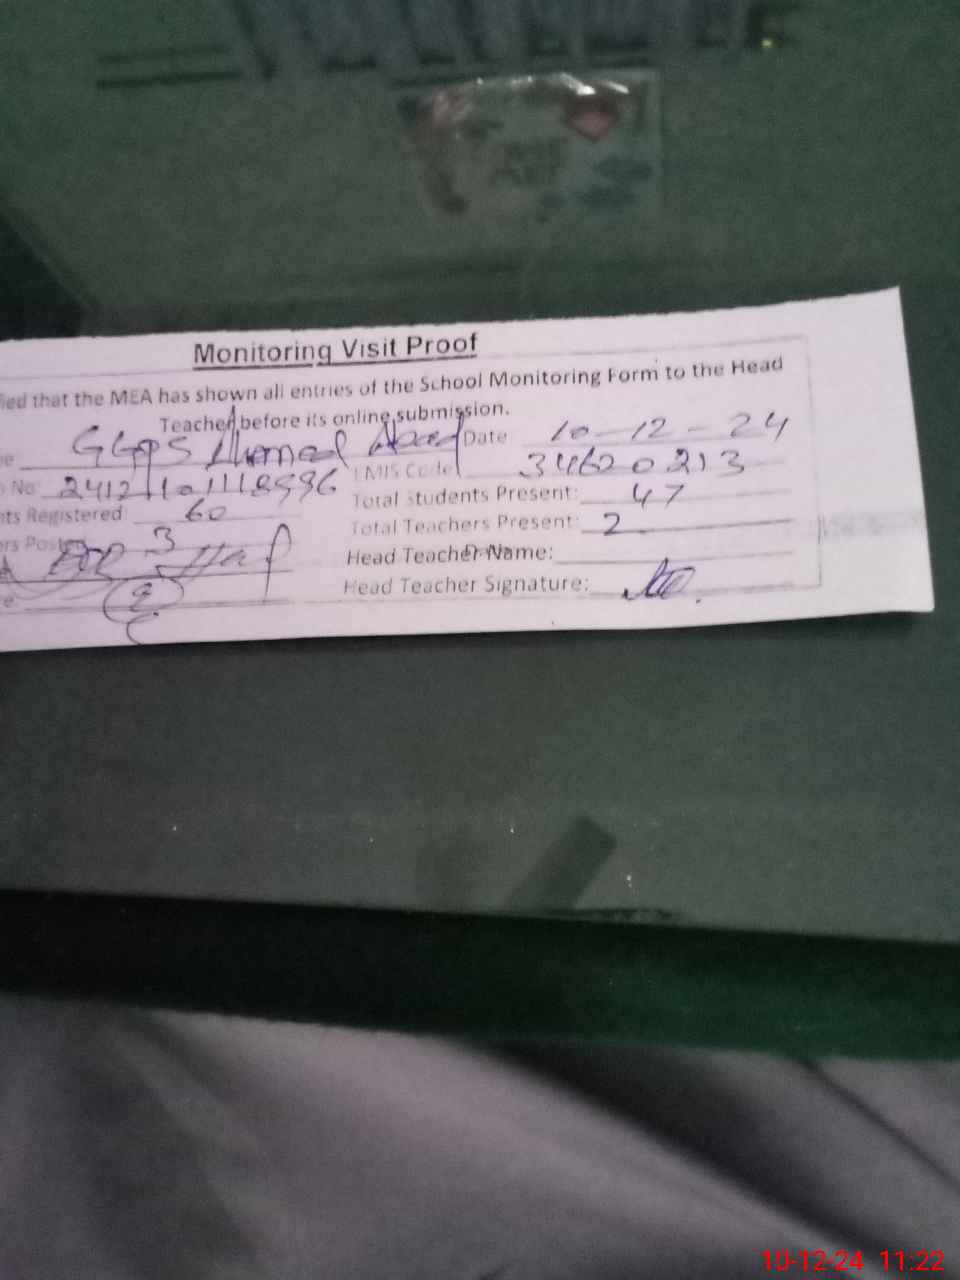 Monitoring Visit Proof
ied that the MEA has shown all entries of the School Monitoring Form to the Head
Teacher before its online submission.
GGPS Ahmed Abad Date 10-12-24
No EMIS Code 34620213
nts Registered: 60 Total Students Present: 47
rs Posted 3 Total Teachers Present: 2
Head Teacher Name:
Head Teacher Signature:
10-12-24 11:22